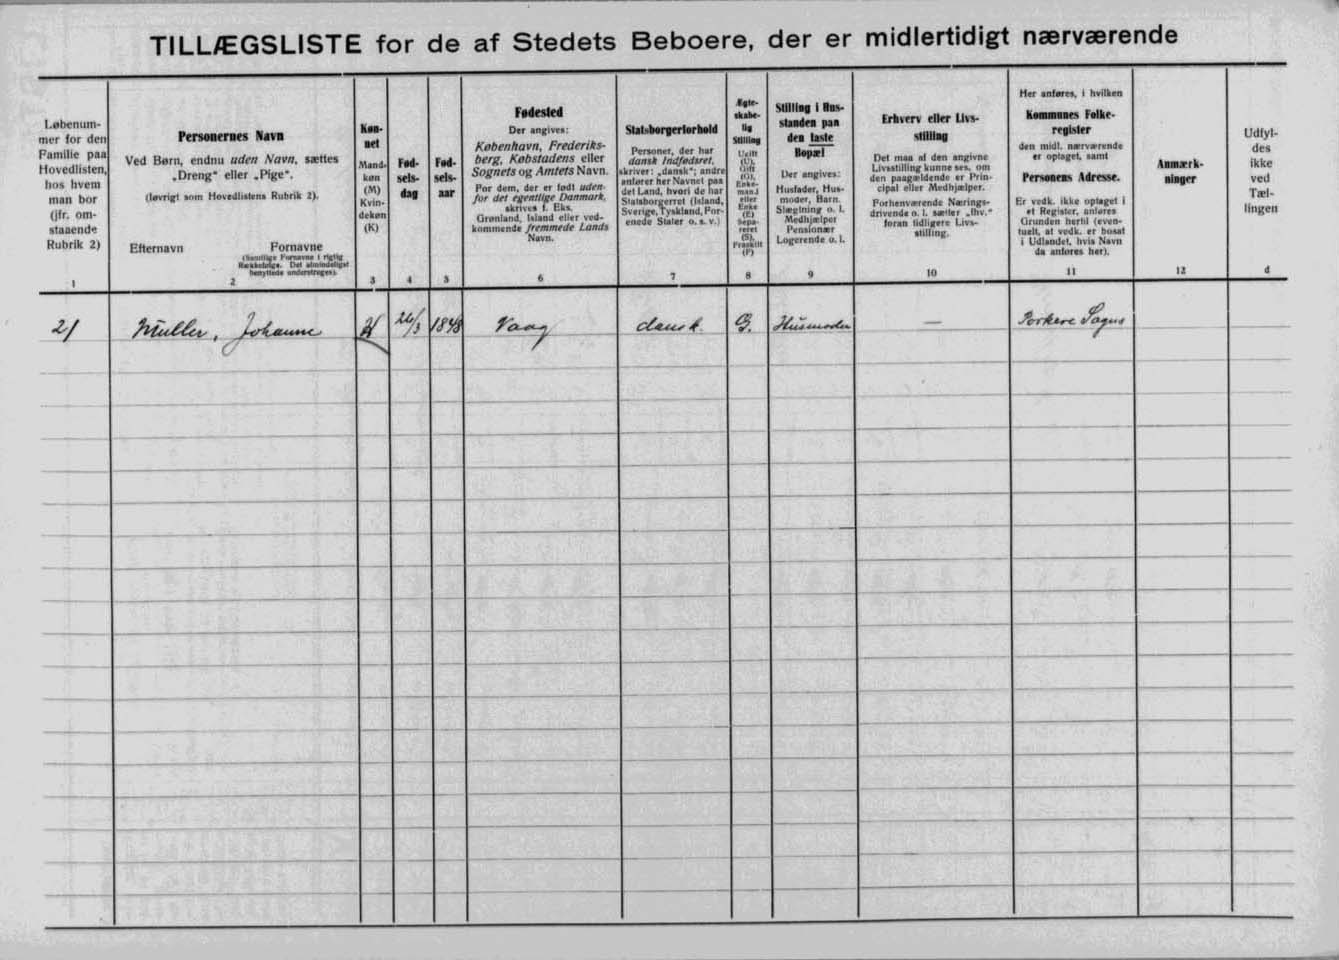 TILLÆGSLISTE for de af Stedets Beboere, der er midlertidigt nærværende
Løbenum-
mer for den
Familie paa
Hovedlisten,
hos hvem
man bor
(jfr. om-
staaende
Rubrik 2)
1
Personernes Navn
Ved Børn, endnu uden Navn, sættes
„Dreng“ eller „Pige“.
(Iøvrigt som Hovedlistens Rubrik 2).
Efternavn
Fornavne
(Samtlige Fornavne i rigtig
Rækkefølge. Det almindeligst
benyttede understreges).
2
Køn-
net
Mand-
køn
(M)
Kvin-
dekøn
(K)
3
Fød-
sels-
dag
4
Fød-
sels-
aar
5
Fødested
Der angives:
København, Frederiks-
berg, Købstadens eller
Sognets og Amtets Navn.
For dem, der er født uden-
for det egentlige Danmark,
skrives f. Eks.
Grønland, Island eller ved-
kommende fremmede Lands
Navn.
6
Statsborgerforhold
Personer, der har
dansk Indfødsret,
skriver: „dansk“; andre
anfører her Navnet paa
det Land, hvori de har
Statsborgerret (Island,
Sverige, Tyskland, For-
enede Stater o. s. v.)
7
Ægte-
skabe-
lig
Stilling
Ugift
(U),
Gift
(G),
Enke-
mand
eller
Enke
(E)
Sepa-
reret
(S),
Fraskilt
(F)
8
Stilling i Hus-
standen paa
den faste
Bopæl
Der angives:
Husfader, Hus-
moder, Barn,
Slægtning o. l.
Medhjælper
Pensionær
Logerende o. l.
9
Erhverv eller Livs-
stilling
Det maa af den angivne
Livsstilling kunne ses, om
den paagældende er Prin-
cipal eller Medhjælper.
Forhenværende Nærings-
drivende o. l. sætter „fhv.“
foran tidligere Livs-
stilling.
10
Her anføres, i hvilken
Kommunes Folke-
register
den midl. nærværende
er optaget, samt
Personens Adresse.
Er vedk. ikke optaget i
et Register, anføres
Grunden hertil (even-
tuelt, at vedk. er bosat
i Udlandet, hvis Navn
da anføres her).
11
Anmærk-
ninger
12
Udfyl-
des
ikke
ved
Tæl-
lingen
d
21 Müller, Johanne K 26/3 1848 Vaag dansk. G. Husmoder — Porkere Sogns